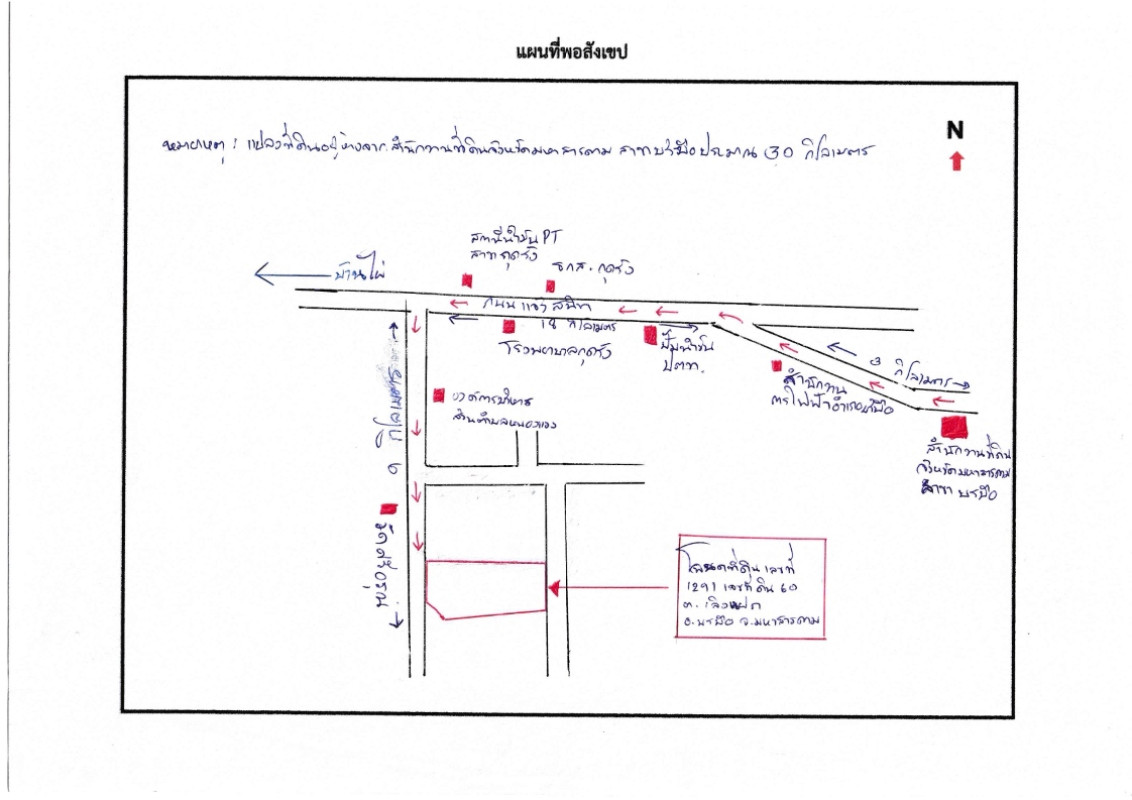 แผนที่พอสังเขป
N
หมายเหตุ : แปลงที่ดินอยู่ห่างจากสำนักงานที่ดินจังหวัดมหาสารคาม สาขาบรบือ ประมาณ 30 กิโลเมตร
สถานีน้ำมัน PT
สาขากุดรัง
ธกส. กุดรัง
บ้านไผ่
ถนนแจ้งสนิท
18 กิโลเมตร
โรงพยาบาลกุดรัง
ปั๊มน้ำมัน
ปตท.
3 กิโลเมตร
สำนักงาน
การไฟฟ้าอำเภอบรบือ
องค์การบริหาร
ส่วนตำบลหนองแวง
สำนักงานที่ดิน
จังหวัดมหาสารคาม
สาขา บรบือ
กิโลเมตร
โฉนดที่ดิน เลขที่
1291 เลขที่ดิน 60
ต. เลิงแฝก
อ.บรบือ จ.มหาสารคาม